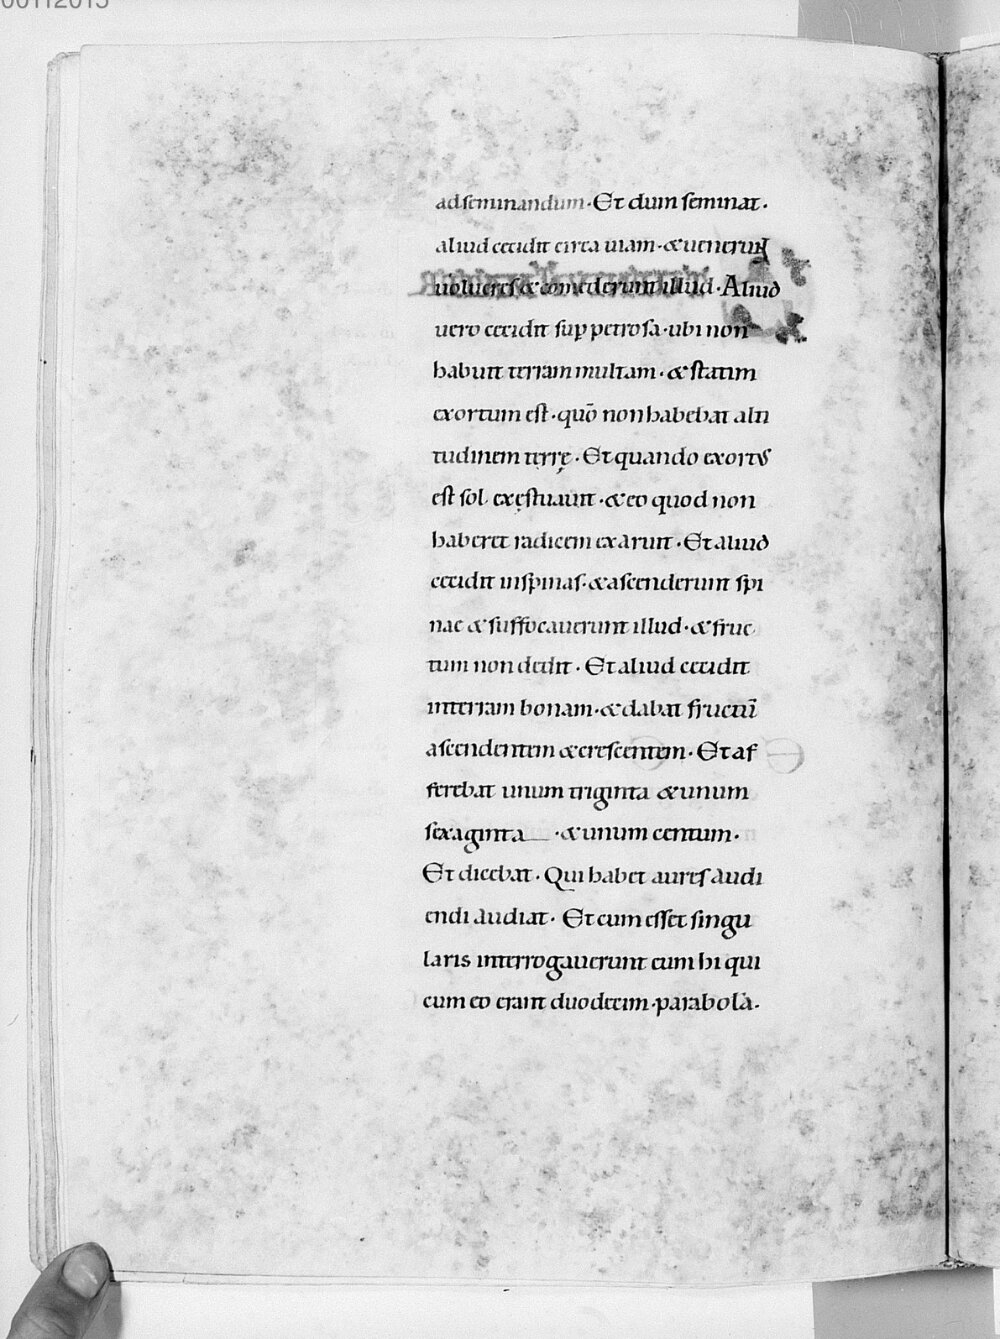 00112015
ad seminandum · Et dum seminat ·
aliud cecidit circa uiam · & uenerunt
uolucres & comederunt illud · Aliud
uero cecidit sup petrosa · ubi non
habuit terram multam · & statim
exortum est · quō non habebat alti
tudinem terrę · Et quando exortus
est sol exęstuauit · & eo quod non
haberet radicem exaruit · Et aliud
cecidit in spinas · & ascenderunt spi
nae & suffocauerunt illud · & fruc
tum non dedit · Et aliud cecidit
in terram bonam · & dabat fructū
ascendentem & crescentem · Et af
ferebat unum triginta & unum
sexaginta · & unum centum ·
Et dicebat · Qui habet aures audi
endi audiat · Et cum esset singu
laris interrogauerunt eum hi qui
cum eo erant duodecim · parabola ·